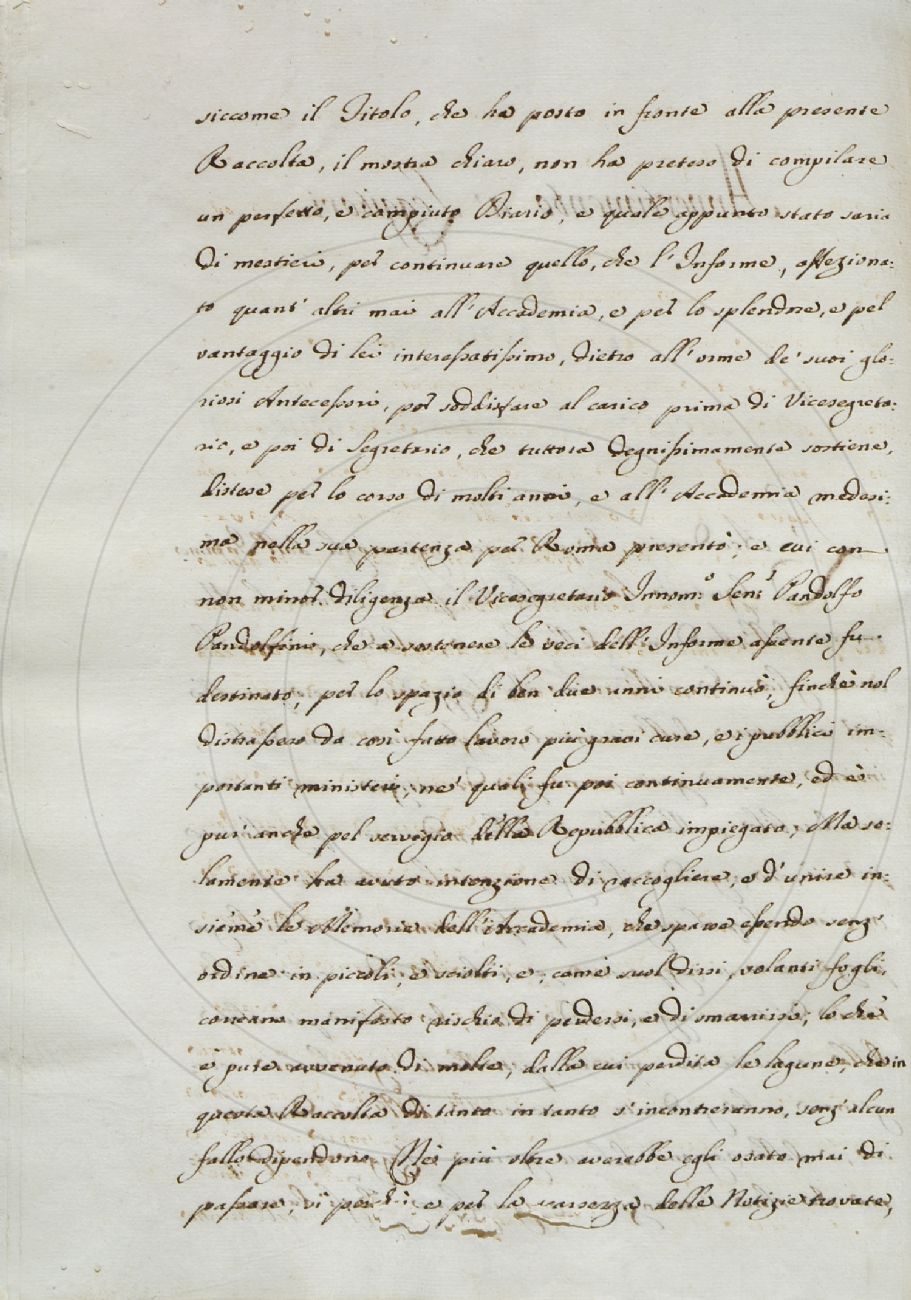 siccome il Titolo, che ha posto in fronte alla presente
Raccolta, il mostra chiaro, non ha preteso di compilare
un perfetto, e compiuto Diario, e quale appunto stato saria
di mestieri, per continuare quello, che l'Informe, affeziona=
to quant'altri mai all'Accademia, e per lo splendore, e pel
vantaggio di lei interessatissimo, dietro all'orme de' suoi glo=
riosi Antecessori, per soddisfare al carico prima di Vicesegreta=
rio, e poi di Segretario, che tuttora degnissimamente sostiene,
distese per lo corso di molti anni, e all'Accademia medesi=
ma nella sua partenza per Roma presentò; e cui con
non minor diligenza il Vicesegretario Innom:o Sen:r Pandolfo
Pandolfini, che a sostenere le veci dell'Informe assente fu
destinato, per lo spazio di ben due anni continuò, finchè nol
distrassero da così fatto lavoro più gravi cure, e i pubblici im=
portanti ministeri, ne' quali fu poi continuamente, ed è
pur'anche pel servigio della Repubblica impiegato; Ma so=
lamente ha avuto intenzione di raccogliere, e d'unire in=
sieme le Memorie dell'Accademia, che sparse essendo senz'
ordine in piccoli, e sciolti, e, come suol dirsi, volanti fogli,
correano manifesto rischio di perdersi, e di smarrirsi; lo che
è pure avvenuto di molte, dalla cui perdita le lagune, che in
questa Raccolta di tanto in tanto s'incontreranno, senz'alcun
fallo dipendono. Nè più oltre averebbe egli osato mai di
passare, sì perchè, e per la scarsezza delle Notizie trovate,